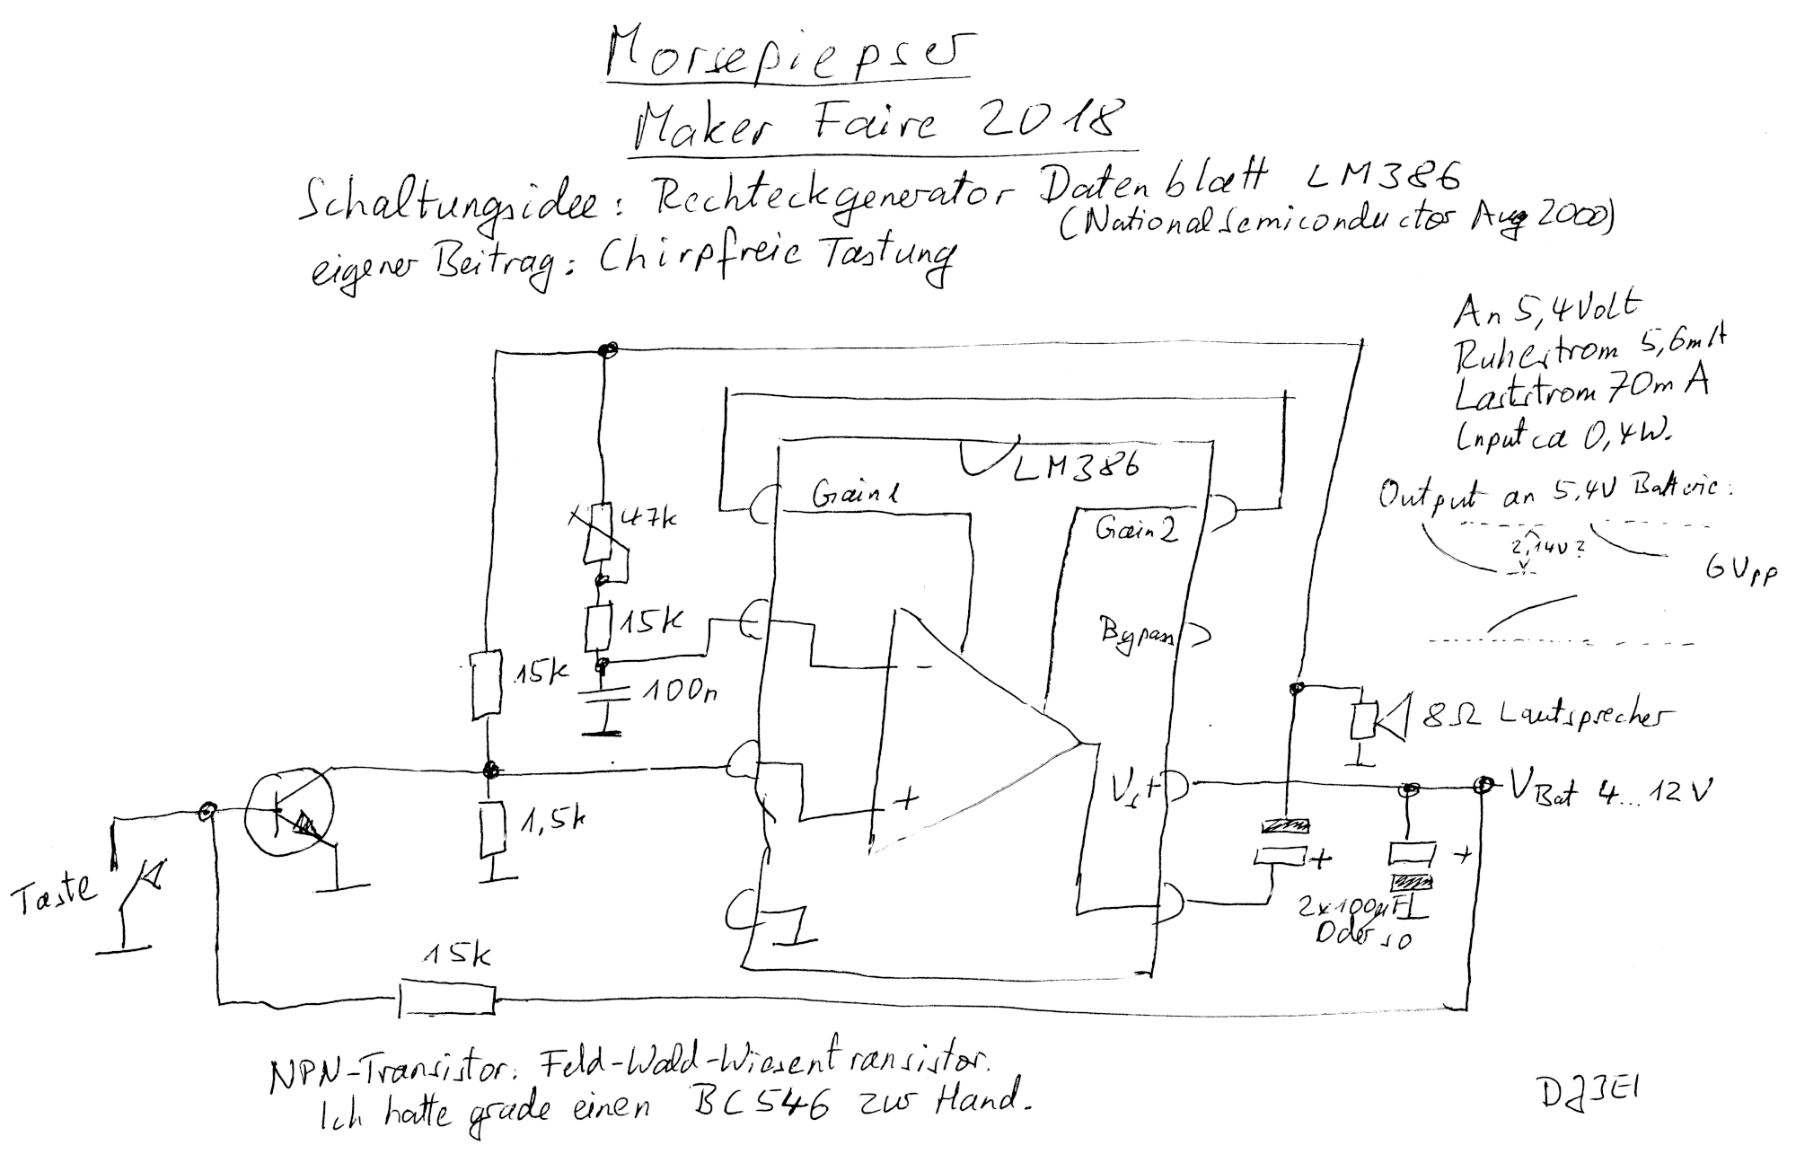 Morsepiepser
Maker Faire 2018
Schaltungsidee: Rechteckgenerator Datenblatt LM386
(National Semiconductor Aug 2000)
eigener Beitrag: Chirpfreie Tastung
An 5,4Volt
Ruhestrom 5,6mA
Laststrom 70mA
Input ca 0,4W.
Output an 5,4V Batterie:
2,14V?
6Vpp
LM386
Gain1
Gain2
47k
15k
Bypass
15k
100n
8Ω Lautsprecher
-
+
Vs+
VBat 4...12V
1,5k
Taste
+
+
2x100µF
Oder so
15k
NPN-Transistor: Feld-Wald-Wiesentransistor.
Ich hatte grade einen BC546 zur Hand.
DJ3EI